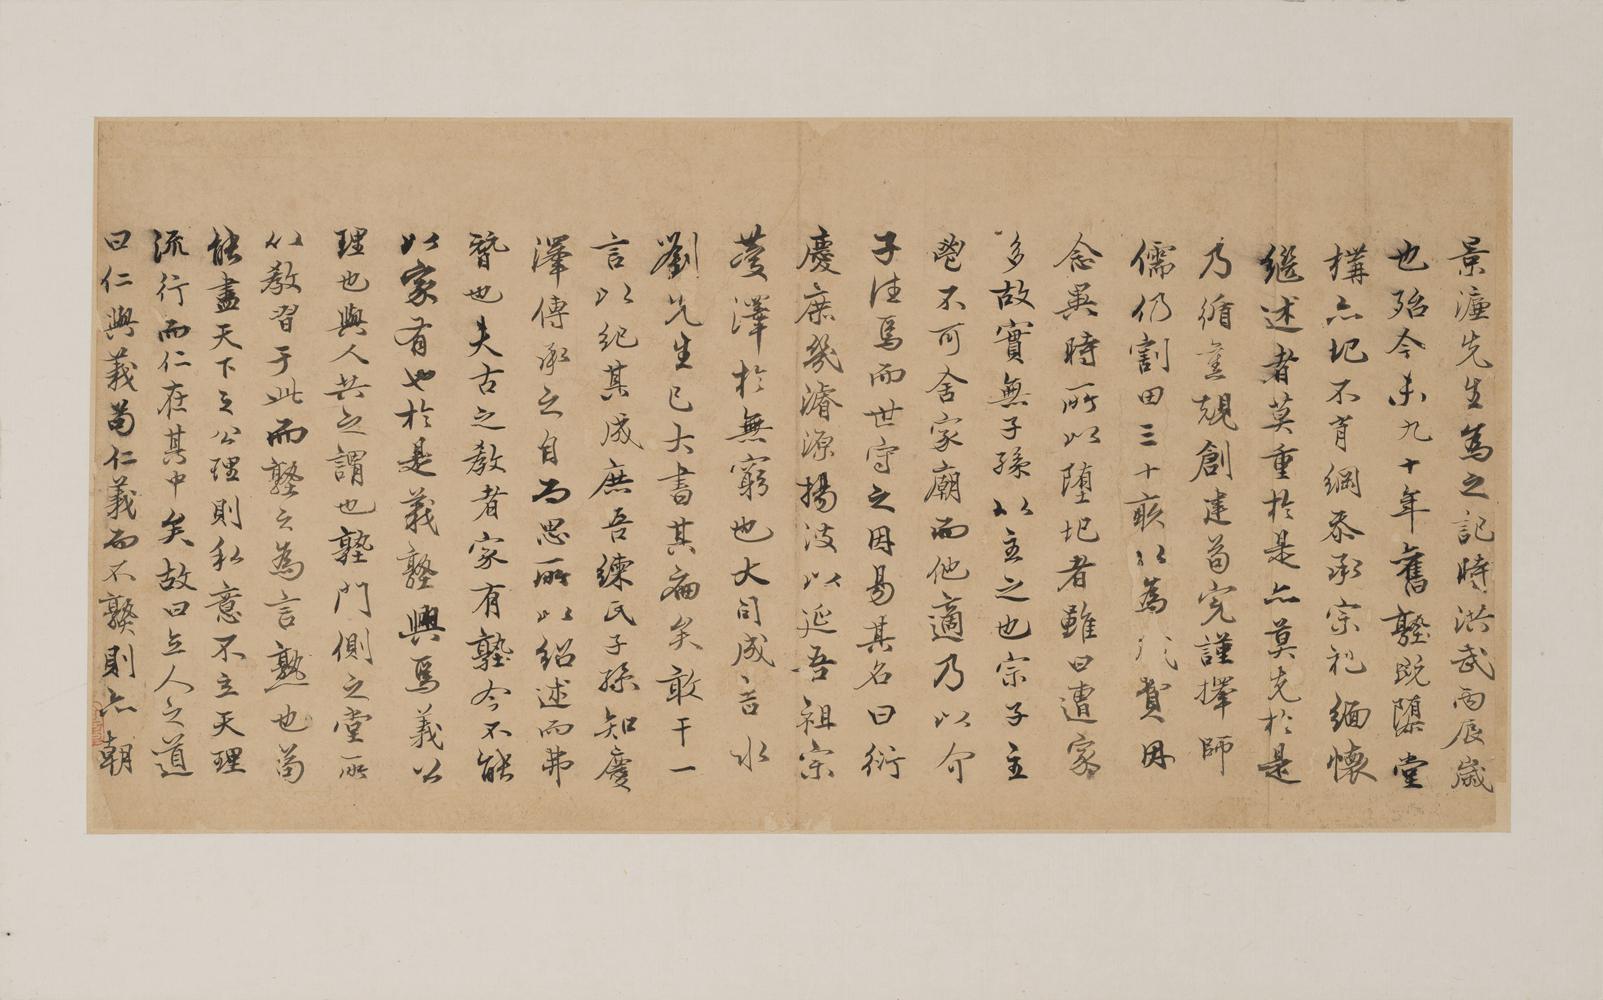 景濂先生為之記時洪武丙辰歲
也殆今未九十年舊塾既隳堂
構亦圮不肖綱忝承宗祀緬懷
繼述者莫重於是亦莫克於是
乃循舊規創建苟完謹擇師
儒仍割田三十畝以為貲用
念異時所以墮圮者雖曰遭家
多故實無子孫以主之也宗子主
鬯不可舍家廟而他適乃以介
子法焉而世守之因易其名曰衍
慶庶幾濬源揚波以延吾祖宗
慶澤於無窮也大司成吉水
劉先生已大書其扁矣敢干一
言以紀其成庶吾練氏子孫知慶
澤傳承之自而思所以紹述而弗
替也夫古之教者家有塾今不能
以家有也於是義塾興焉義以
理也與人共之謂也塾門側之堂所
以教習于此而塾之為言熟也苟
能盡天下之公理則私意不立天理
流行而仁在其中矣故曰立人之道
曰仁與義苟仁義而不熟則亦朝